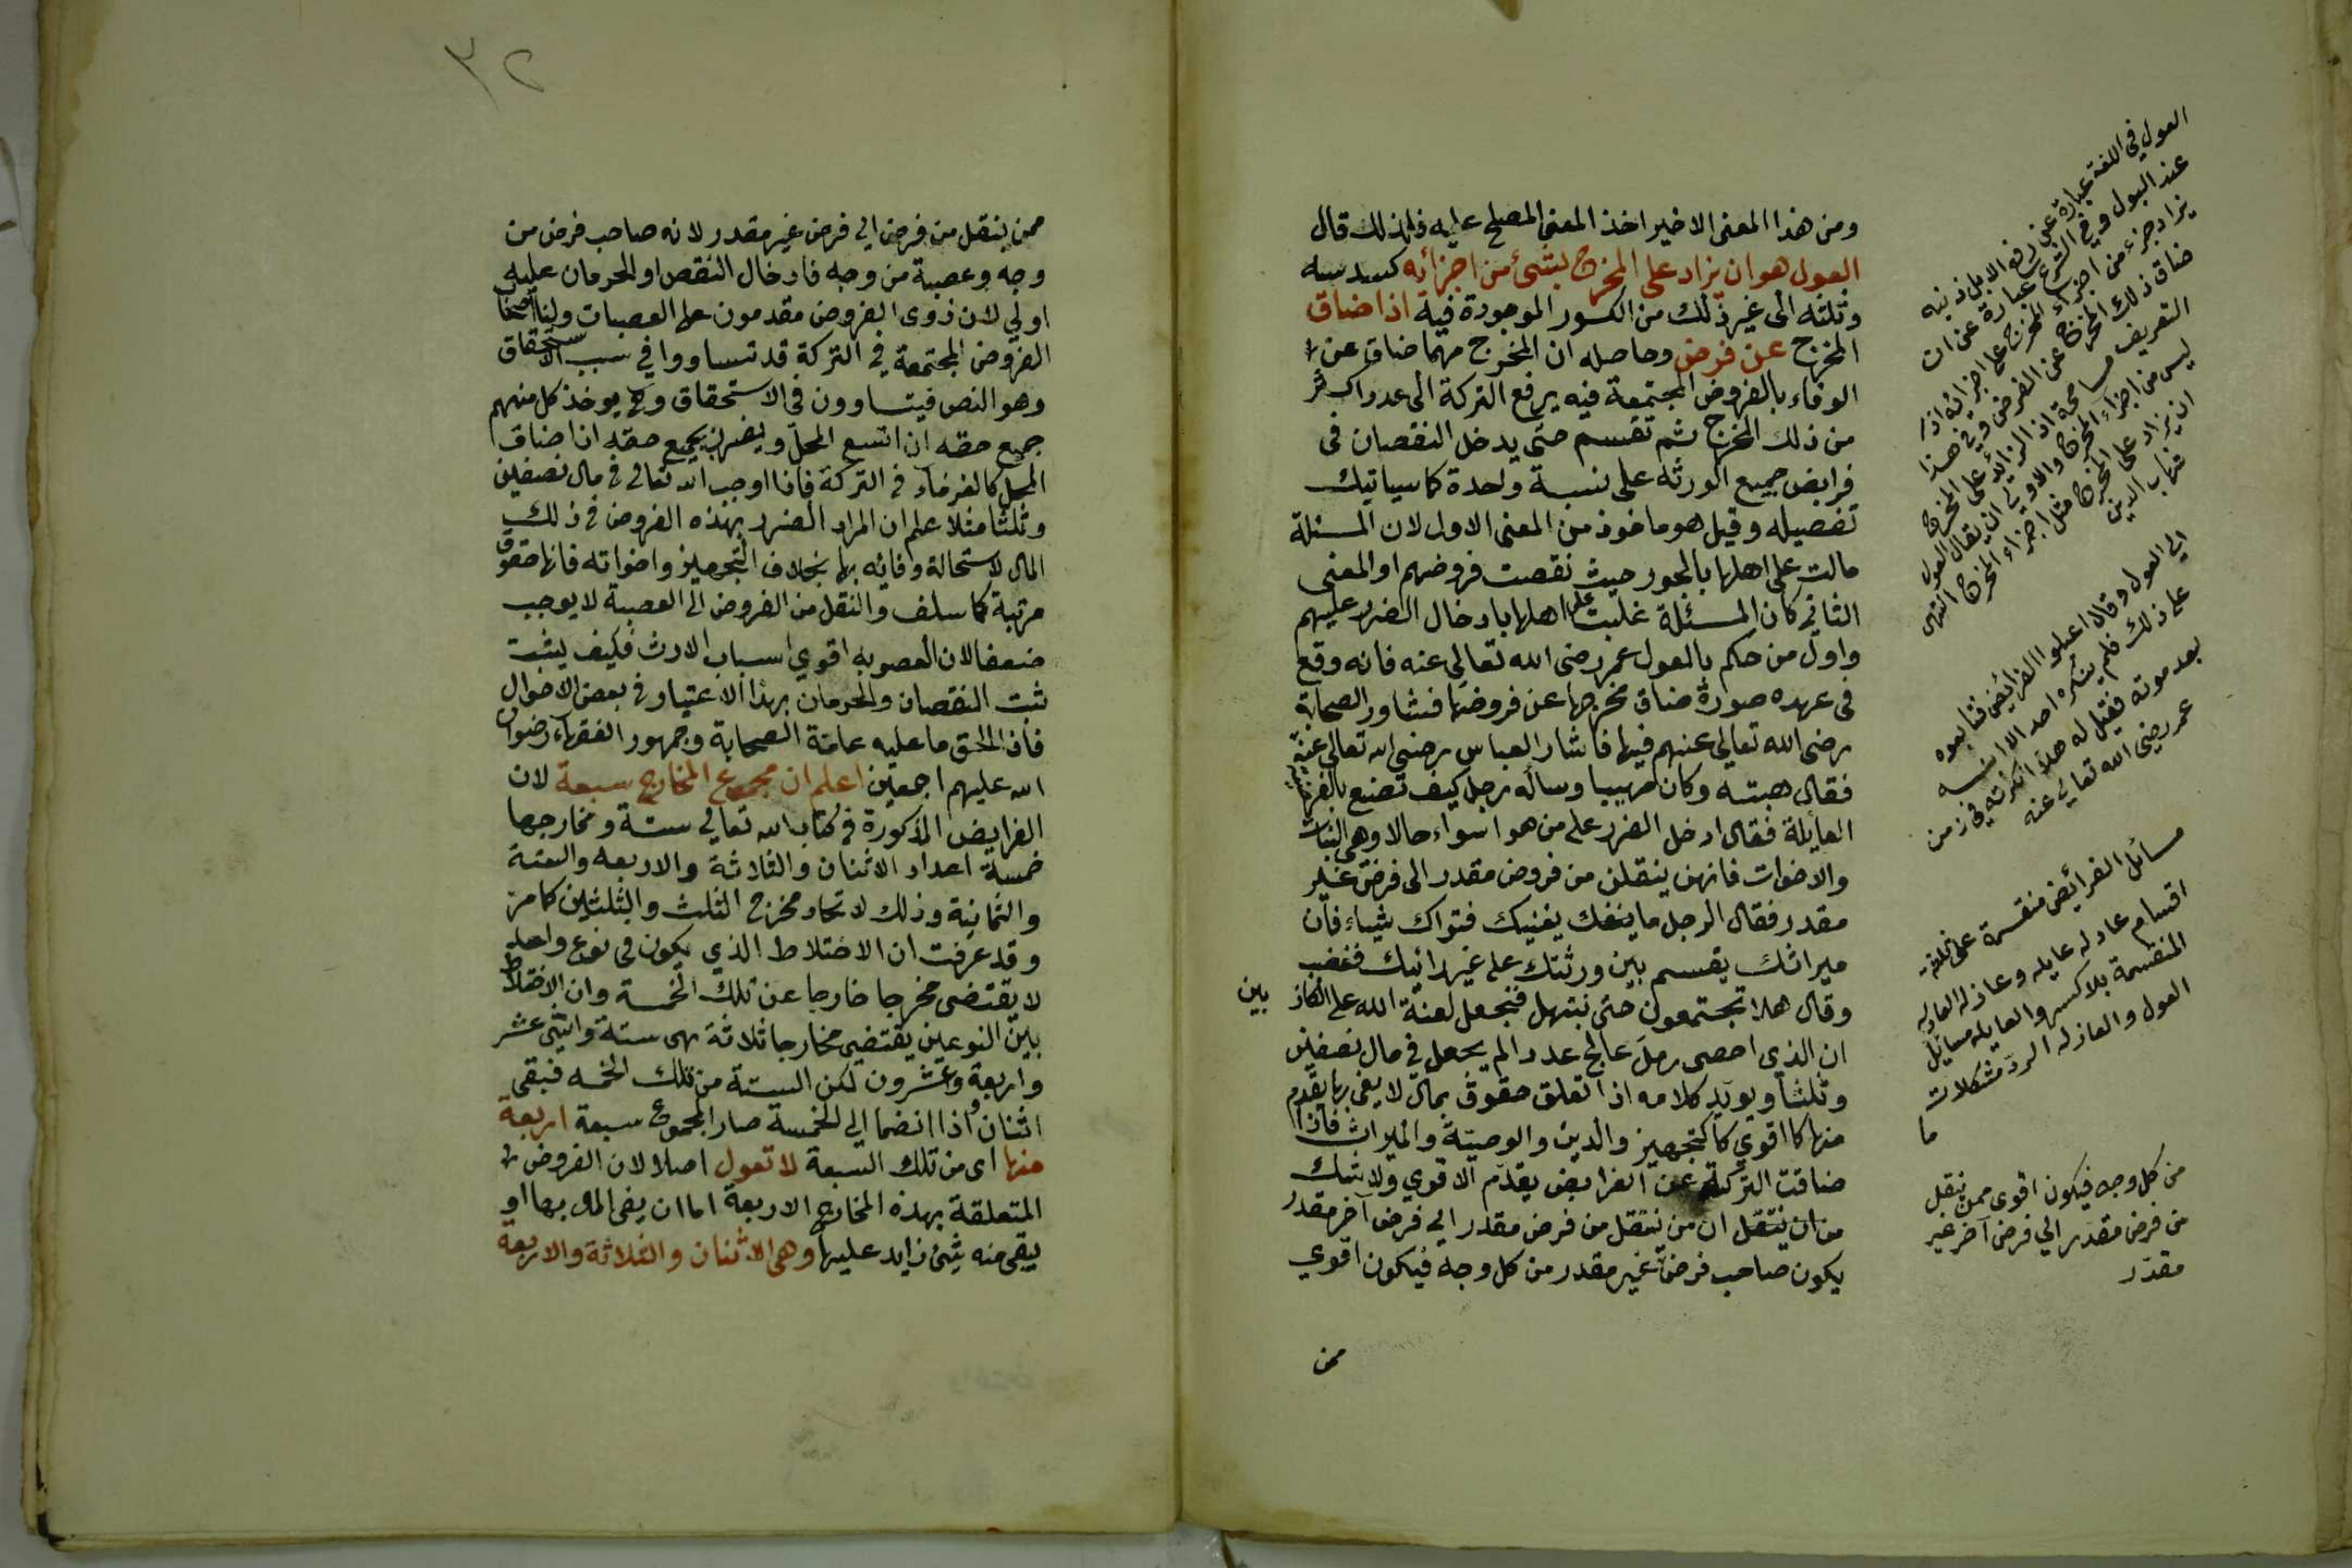 ومن هذا المعنى الاخير اخذ المعنى المصطلح عليه فلذلك قال
العول هو ان يزاد على المخرج بشئ من اجزائه كسدسه
وثلثه الى غير ذلك من الكسور الموجودة فيه اذا ضاق
المخرج عن فرض وحاصله ان المخرج مهما ضاق عن
الوفاء بالفروض المجتمعة فيه يرفع التركة الى عدد اكثر
من ذلك المخرج ثم تقسم حتى يدخل النقصان في
فرايض جميع الورثه على نسبة واحدة كما سياتيك
تفصيله وقيل هو ماخوذ من المعنى الاول لان المسئلة
مالت على اهلها بالجور حيث نقصت فروضهم او المعنى
الثاني كان المسئلة غلبت على اهلها بادخال الضرر عليهم
واول من حكم بالعول عمر رضى الله تعالي عنه فانه وقع
في عهده صورة ضاق مخرجها عن فروضها فشاور الصحابة
رضى الله تعالي عنهم فيها فاشار العباس رضى الله تعالي عنه
فقال هبته وكان مهيبا وساله رجل كيف تصنع بالفريضة
العايلة فقال ادخل الضرر على من هو اسواء حالا وهى البنات
والاخوات فانهن ينتقلن من فروض مقدر الى فرض غير
مقدر فقال الرجل ما ينفك يغنيك فتواك شياء فان
ميراثك يقسم بين ورثتك على غير رائيك فغضب
وقال هلا تجتمعون حتى نبتهل فنجعل لعنة الله على الكاذبين
ان الذي احصى رمل عالج عددا لم يجعل في مال نصفين
وثلثا ويويد كلامه اذا تعلق حقوق بمال لا يفى بها يقدم
منها كا اقوي كالتجهيز والدين والوصية والميراث فاذا
ضاقت التركة عن الفرايض يقدم الاقوي ولا شك
من ان ينتقل ان من ينتقل من فرض مقدر الي فرض آخر مقدر
يكون صاحب فرض غير مقدر من كل وجه فيكون اقوي
ممن
العول في اللغة عبارة عن رفع الابل ذنبه
عند البول وفي الشرع عبارة عن ان
يزاد جزء من اجزاء المخرج على اجزائه اذا
ضاق ذلك المخرج عن الفرض وفي هذا
التعريف مسامحة اذ الزائد على المخرج
ليس من اجزاء المخرج والاولي ان يقال العول
ان يزاد على المخرج مثل اجزاء المخرج انتهى
شهاب الدين
الي العول وقال اعيلوا الفرائض فتابعوه
على ذلك فلم ينكره احد الا ابنه
بعد موته فقيل له هلا انكرته في زمن
عمر رضى الله تعالي عنه
مسائل الفرائض منقسمة على ثلثة
اقسام عادله عايله وعاذله العادله
المنقسمة بلا كسر والعايله مسايل
العول والعاذله الرد مشكلات
من كل وجه فيكون اقوى ممن ينقل
من فرض مقدر الي فرض آخر غير
مقدر
٣٢
ممن ينتقل من فرض الي فرض غير مقدر لانه صاحب فرض من
وجه وعصبة من وجه فادخال النقص او الحرمان عليه
اولي لان ذوى الفروض مقدمون على العصبات ولنا اصحاب
الفروض المجتمعة في التركة قد تساووا في سبب الاستحقاق
وهو النص فيتساوون في الاستحقاق وح يوخذ كل منهم
جميع حقه ان اتسع المحل ويضرب بجميع حقه ان ضاق
المحل كالغرماء في التركة فاذا اوجب الله تعالى في مال نصفين
وثلثا مثلا علم ان المراد الضرر بهذه الفروض في ذلك
المال لاستحالة وفائه بها بخلاف التجهيز واخواته فانها حقوق
مرتبة كما سلف والنقل من الفروض الى العصبة لا يوجب
ضعفا لان العصوبه اقوي اسباب الارث فكيف يثبت
ثبت النقصان والحرمان بهذا الاعتبار في بعض الاحوال
فاذا الحق ما عليه عامة الصحابة وجمهور الفقهاء رضوان
الله عليهم اجمعين اعلم ان مجموع المخارج سبعة لان
الفرايض المذكورة في كتاب الله تعالي ستة ومخارجها
خمسة اعداد الاثنان والثلاثة والاربعه والستة
والثمانية وذلك لاتحاد مخرج الثلث والثلثين كما مر
وقد عرفت ان الاختلاط الذي يكون في نوع واحد
لا يقتضى مخرجا خارجا عن تلك الخمسة وان الاختلاط
بين النوعين يقتضى مخارجا ثلاثة هى ستة واثنى عشر
واربعة وعشرون لكن الستة من تلك الخمسه فبقى
اثنان واذا انضما الي الخمسة صار المجموع سبعة اربعة
منها اى من تلك السبعة لا تعول اصلا لان الفروض
المتعلقة بهذه المخارج الاربعة اما ان يفى المال بها او
يبقى منه شئ زايد عليها وهى الاثنان والثلاثة والاربعة